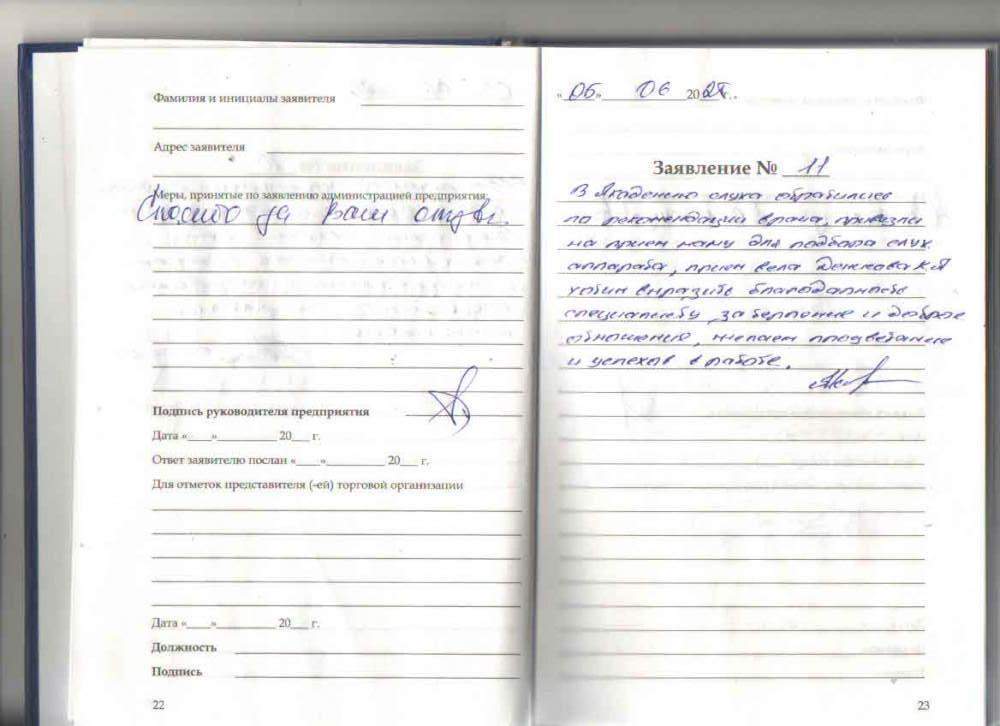 Фамилия и инициалы заявителя
Адрес заявителя
Меры, принятые по заявлению администрацией предприятия:
Спасибо за Ваш отзыв.
Подпись руководителя предприятия
Дата «____»__________ 20___ г.
Ответ заявителю послан «____»__________ 20___ г.
Для отметок представителя (-ей) торговой организации
Дата «____»__________ 20___ г.
Должность
Подпись
22
«05» 06 20 г.
Заявление № 11
В Академию слуха обратились
по рекомендации врача, привезли
на прием маму для подбора слух.
аппарата, прием вела К.А
хотим выразить благодарность
специалисту, за терпение и доброе
отношение, желаем процветание
и успехов в работе.
23